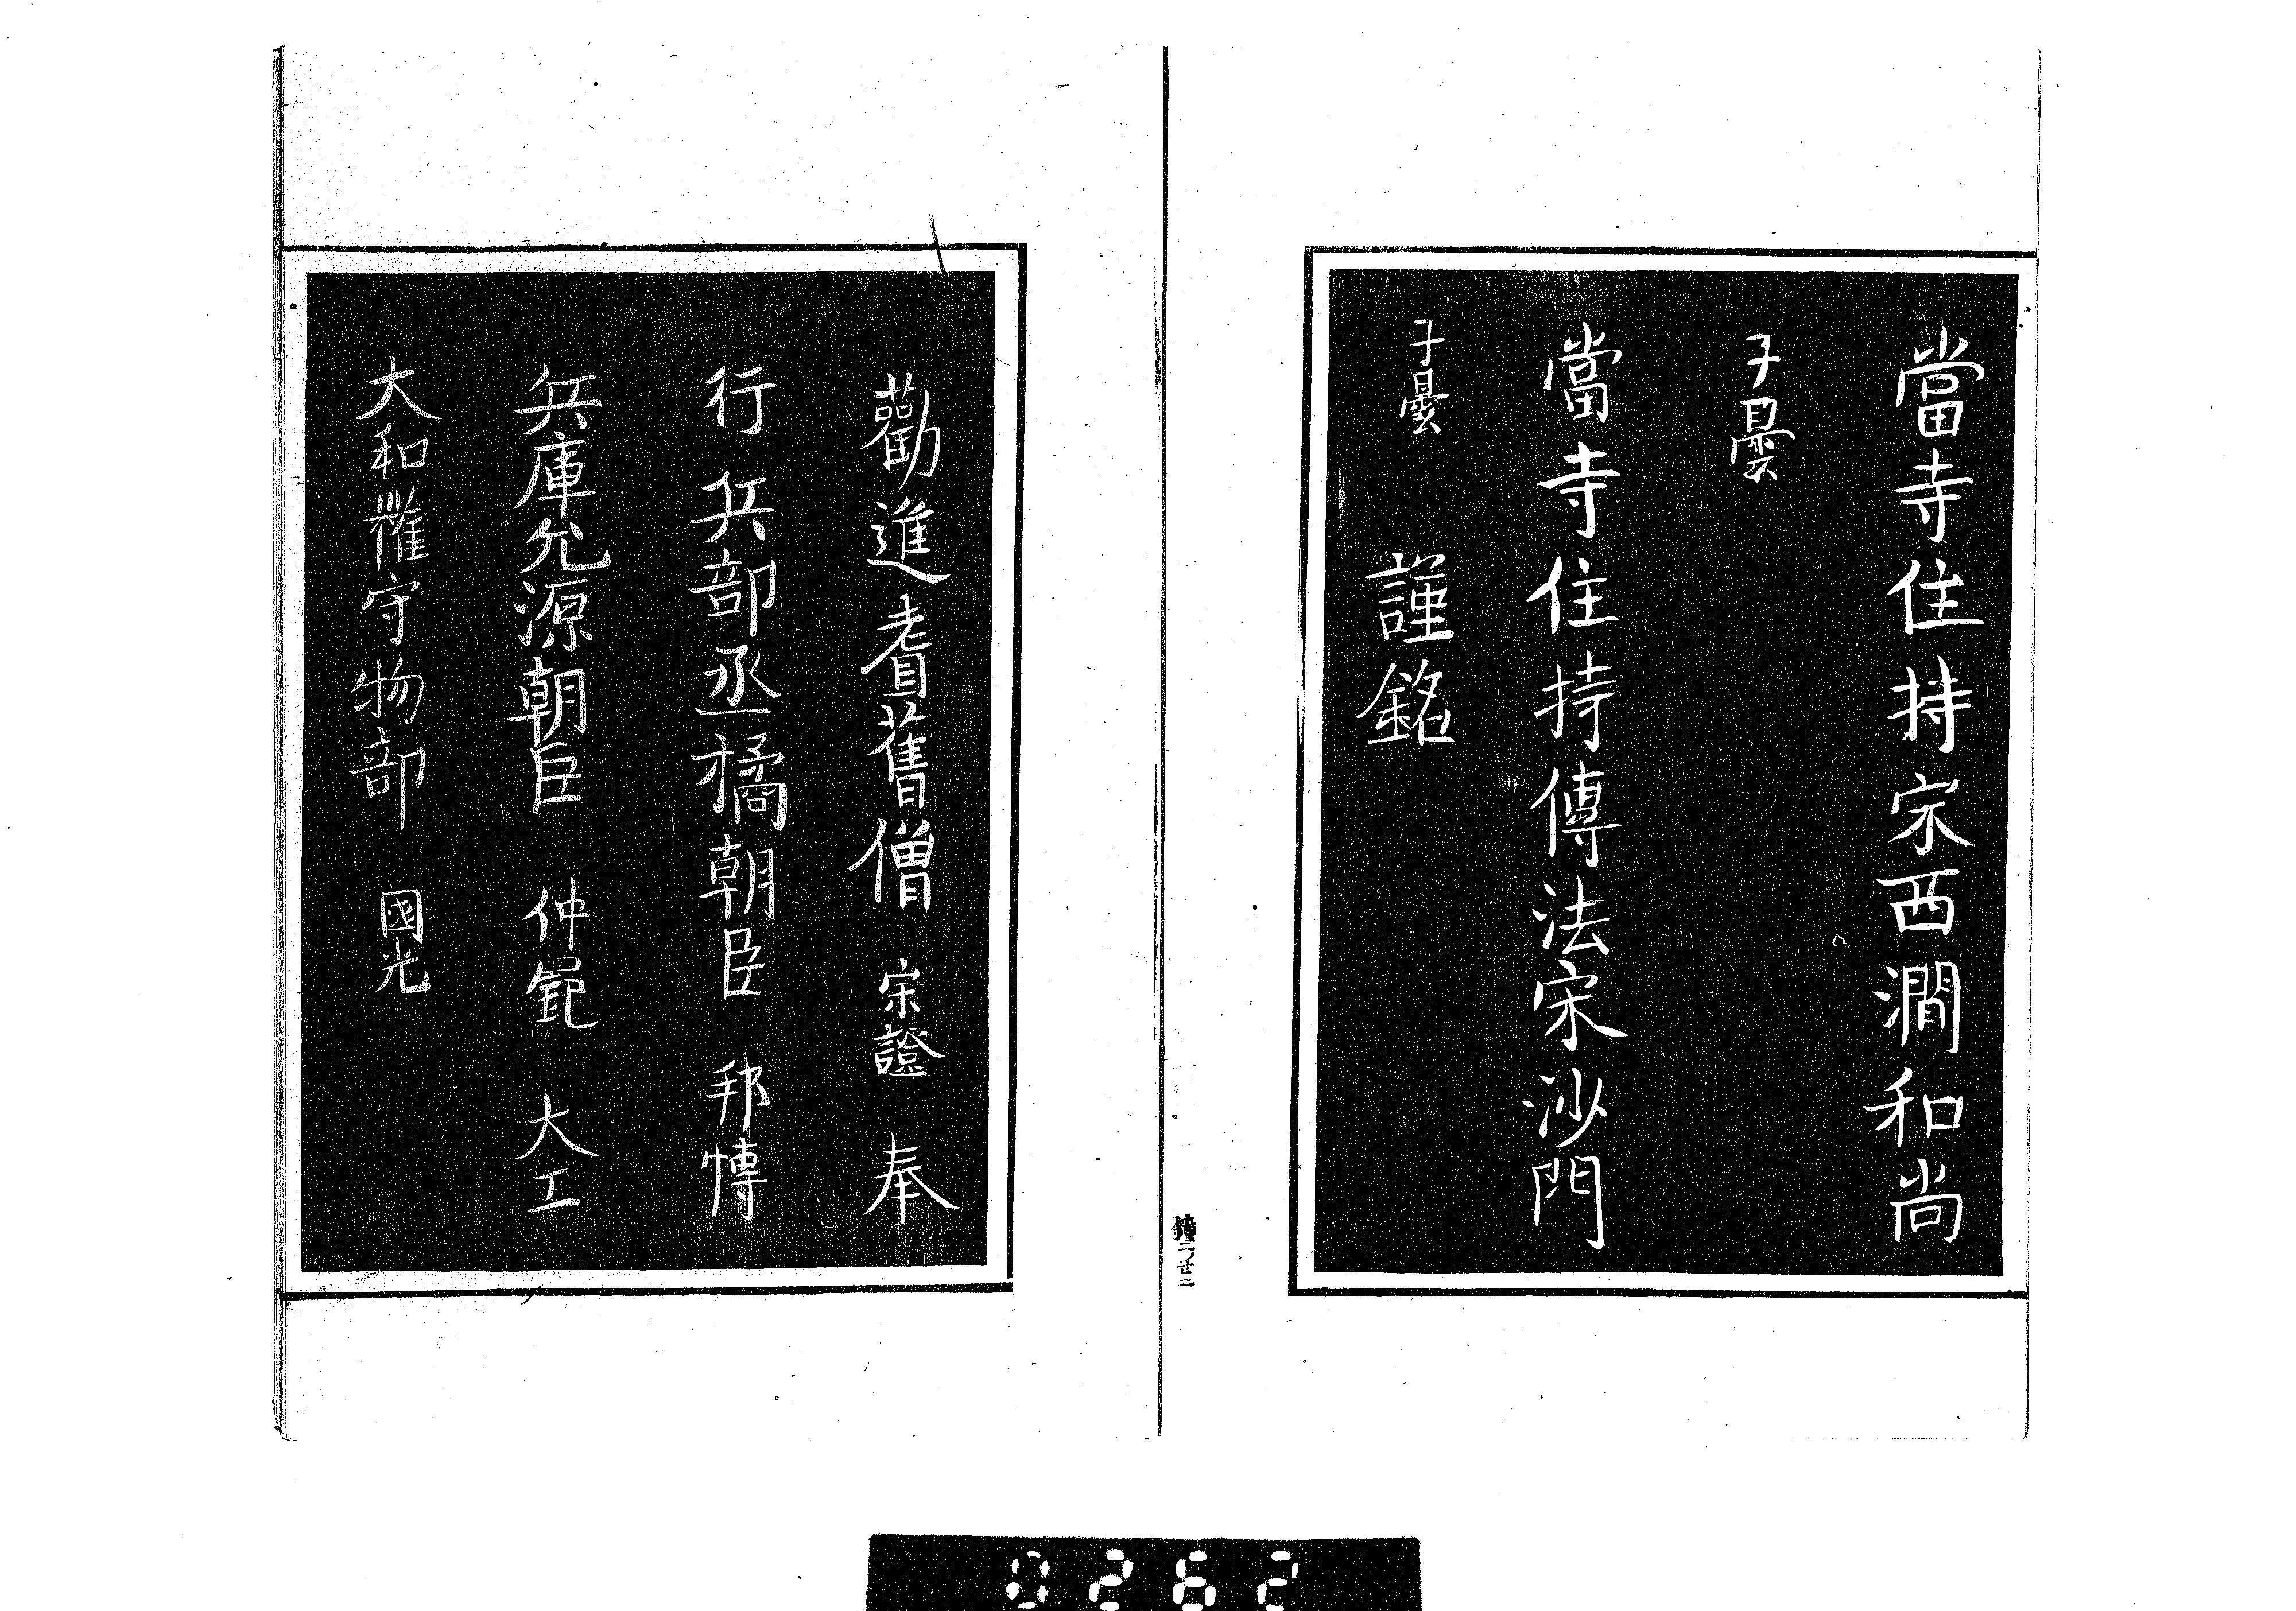 當寺住持宋西澗和尚
子曇
當寺住持傳法宋沙門
子曇 謹銘
勸進耆舊僧 宗證 奉
行兵部丞橘朝臣 邦博
兵庫允源朝臣 仲 大工
大和權守物部 國光
鐘二ノ廿二
0262